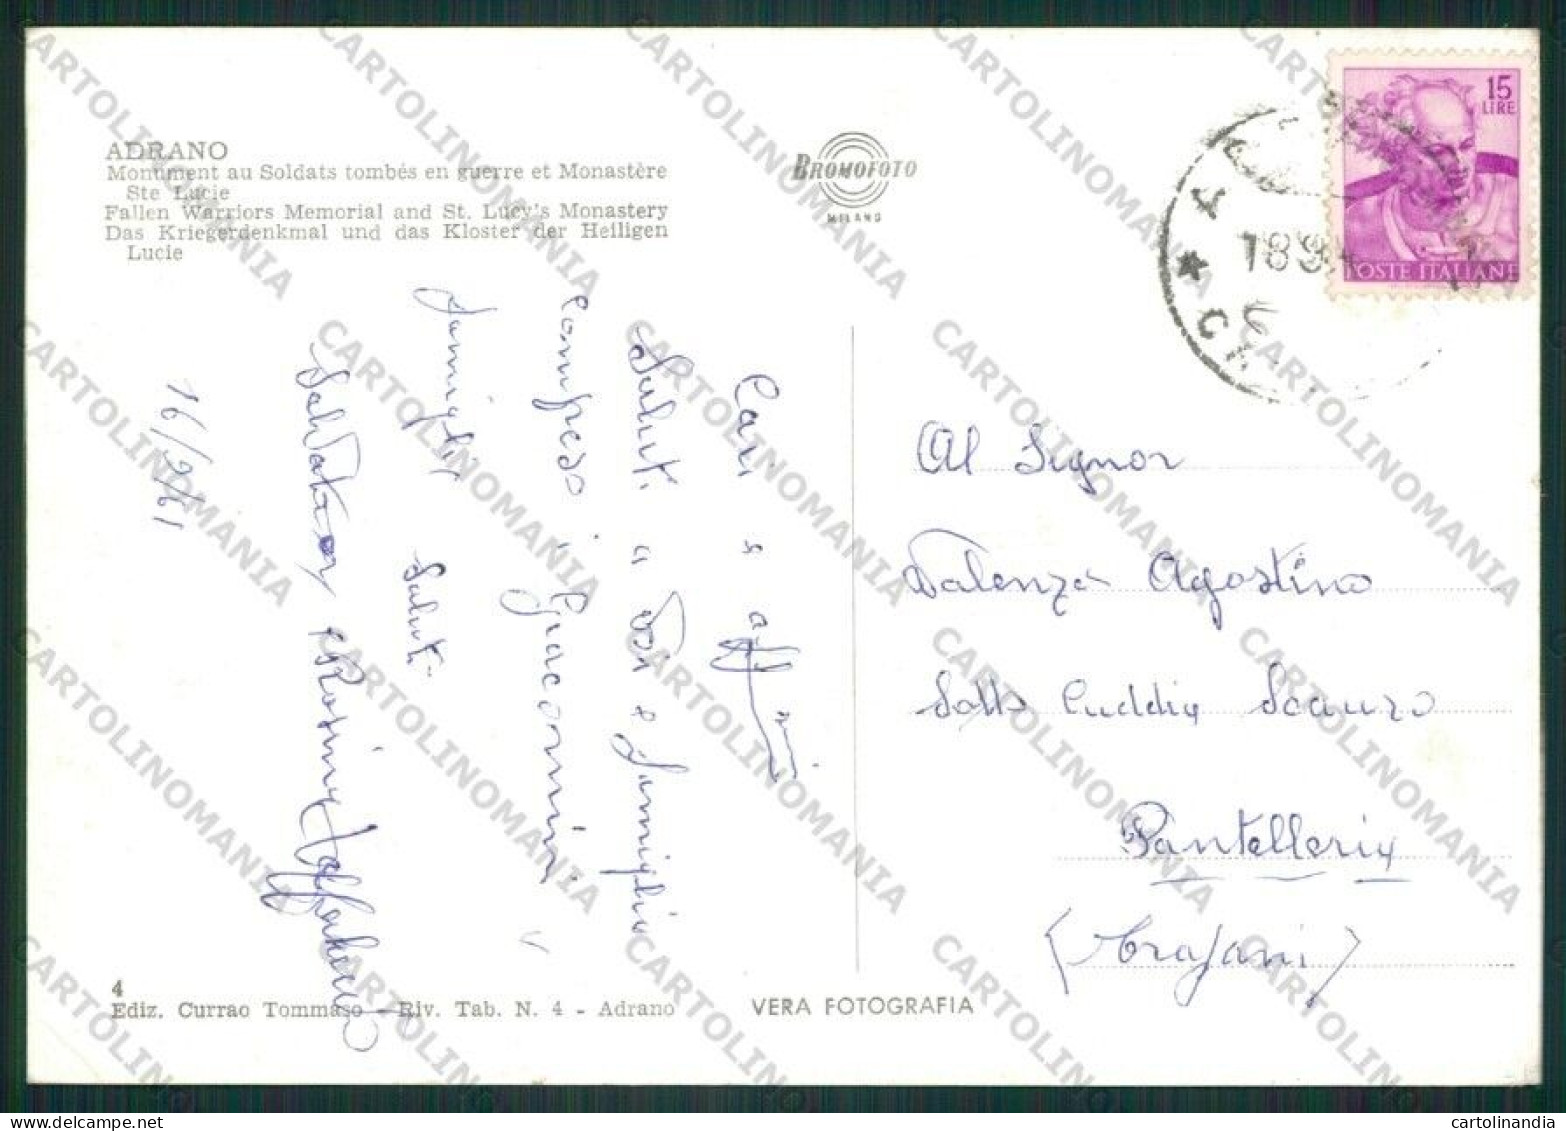 ADRANO
Monument au Soldats tombés en guerre et Monastère
Ste Lucie
Fallen Warriors Memorial and St. Lucy's Monastery
Das Kriegerdenkmal und das Kloster der Heiligen
Lucie
BROMOFOTO
MILANO
15
LIRE
POSTE ITALIANE
Cari
Saluti a Voi e Famiglia
compreso i Giacomini
famiglia Saluti
Salvatore e Rosina
16/9/61
Al Signor
Valenza Agostino
Sotto Cuddia Scauro
Pantelleria
(Trapani)
4
Ediz. Currao Tommaso - Riv. Tab. N. 4 - Adrano
VERA FOTOGRAFIA
CARTOLINOMANIA
www.delcampe.net
cartolinandia